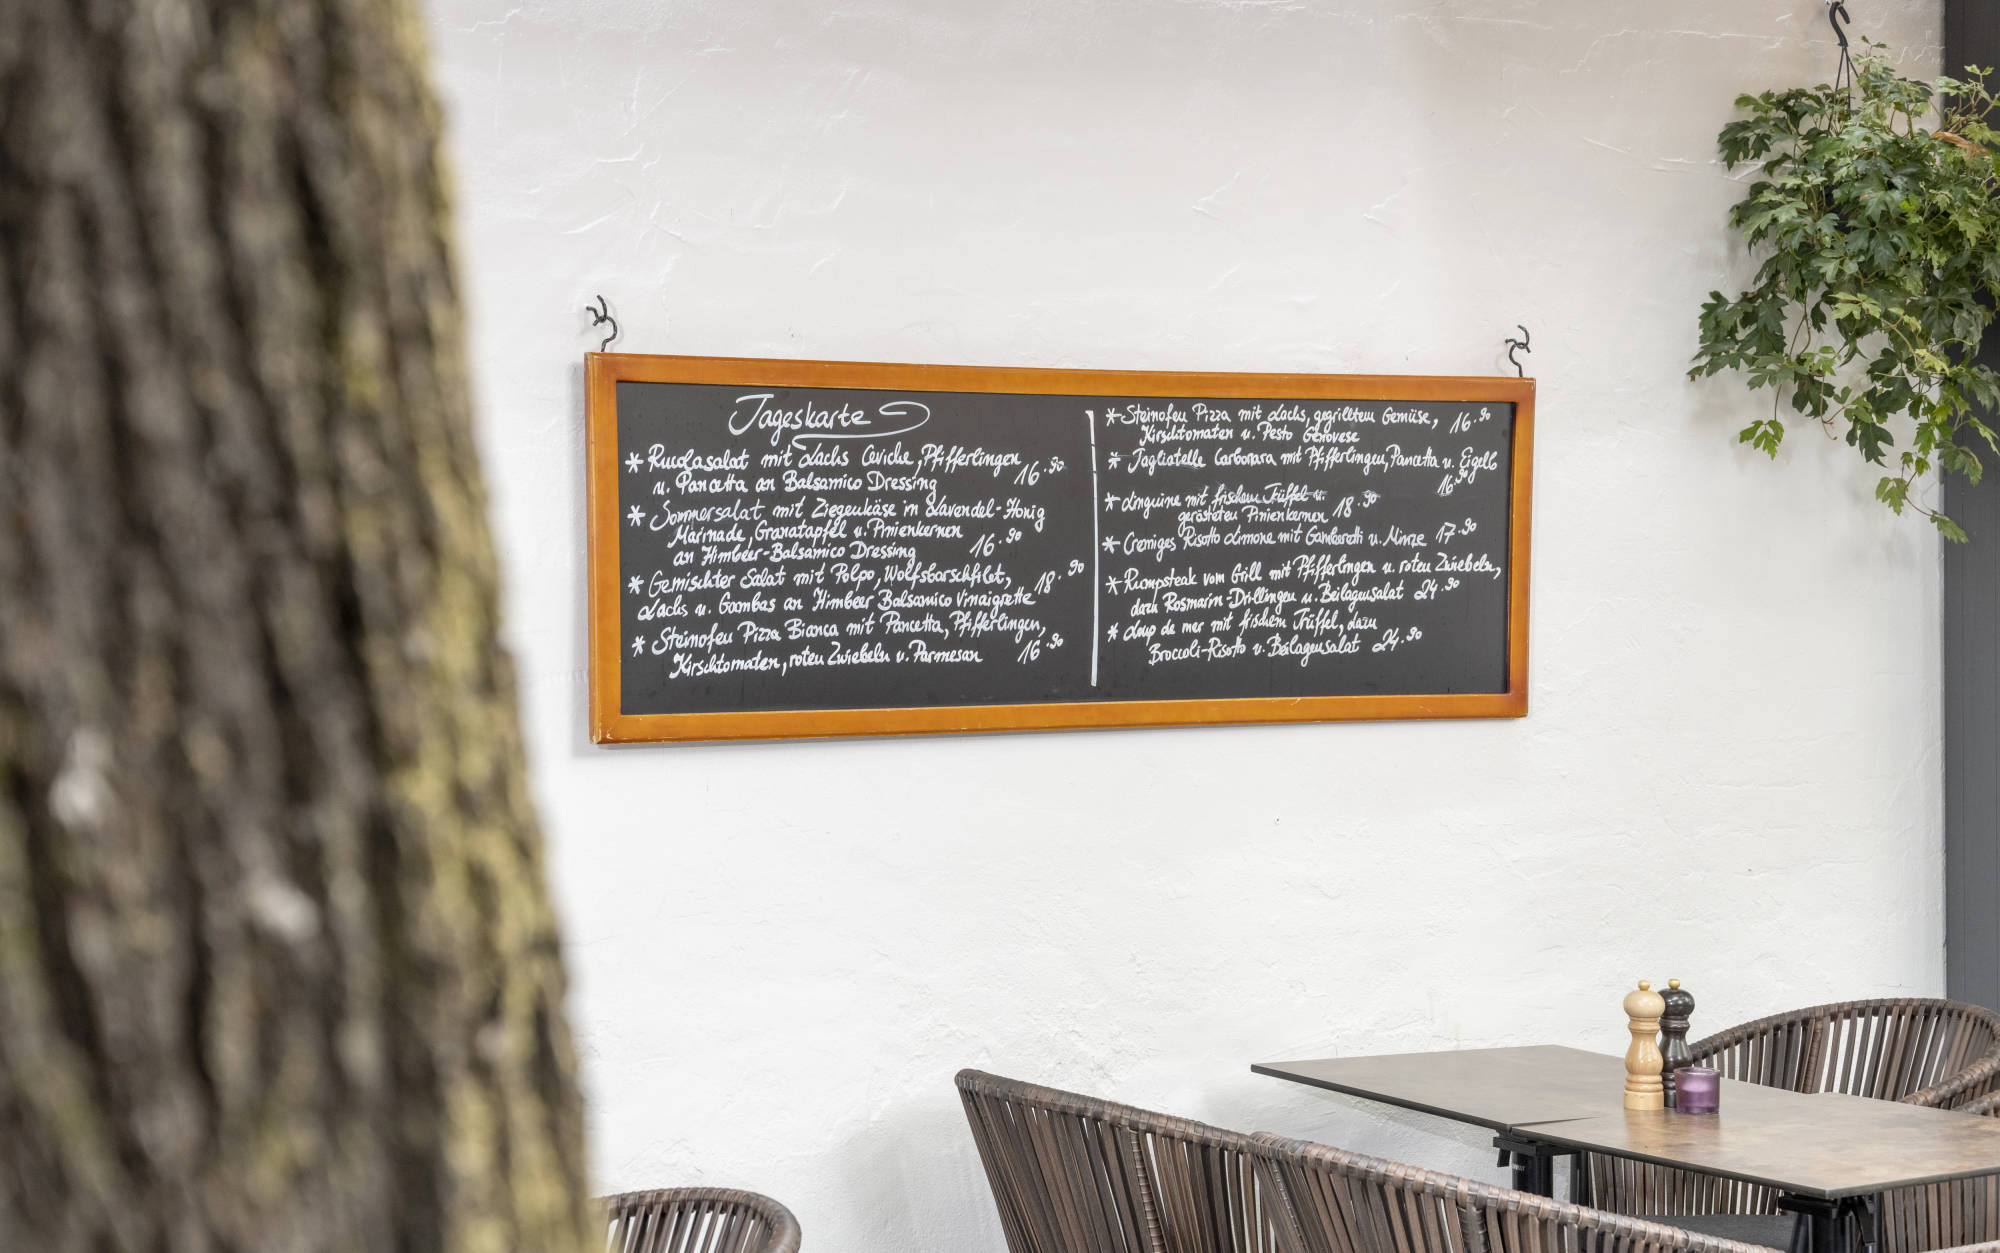 Tageskarte
* Rucolasalat mit Lachs Ceviche, Pfifferlingen
u. Pancetta an Balsamico Dressing 16.90
* Sommersalat mit Ziegenkäse in Lavendel-Honig
Marinade, Granatapfel u. Pinienkernen
an Himbeer-Balsamico Dressing 16.90
* Gemischter Salat mit Polpo, Wolfsbarschfilet,
Lachs u. Gambas an Himbeer Balsamico Vinaigrette 18.90
* Steinofen Pizza Bianca mit Pancetta, Pfifferlingen,
Kirschtomaten, roten Zwiebeln u. Parmesan 16.90
* Steinofen Pizza mit Lachs, gegrilltem Gemüse,
Kirschtomaten u. Pesto Genovese 16.90
* Tagliatelle Carbonara mit Pfifferlingen, Pancetta u. Eigelb
16.90
* Linguine mit frischem Trüffel u.
gerösteten Pinienkernen 18.90
* Cremiges Risotto Limone mit Gamberetti u. Minze 17.90
* Rumpsteak vom Grill mit Pfifferlingen u. roten Zwiebeln,
dazu Rosmarin-Drillingen u. Beilagensalat 24.90
* Loup de mer mit frischem Trüffel, dazu
Broccoli-Risotto u. Beilagensalat 24.90